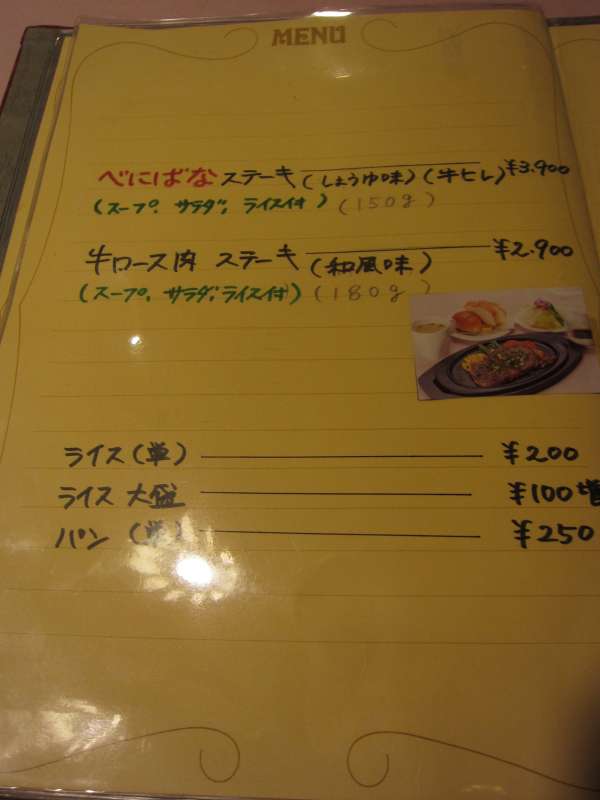 MENU
べにばなステーキ(しょうゆ味)(牛ヒレ) ¥3.900
(スープ、サラダ、ライス付)(150g)
牛ロース肉 ステーキ(和風味) ¥2.900
(スープ、サラダ、ライス付)(180g)
ライス(単) ¥200
ライス 大盛 ¥100増
パン (単) ¥250